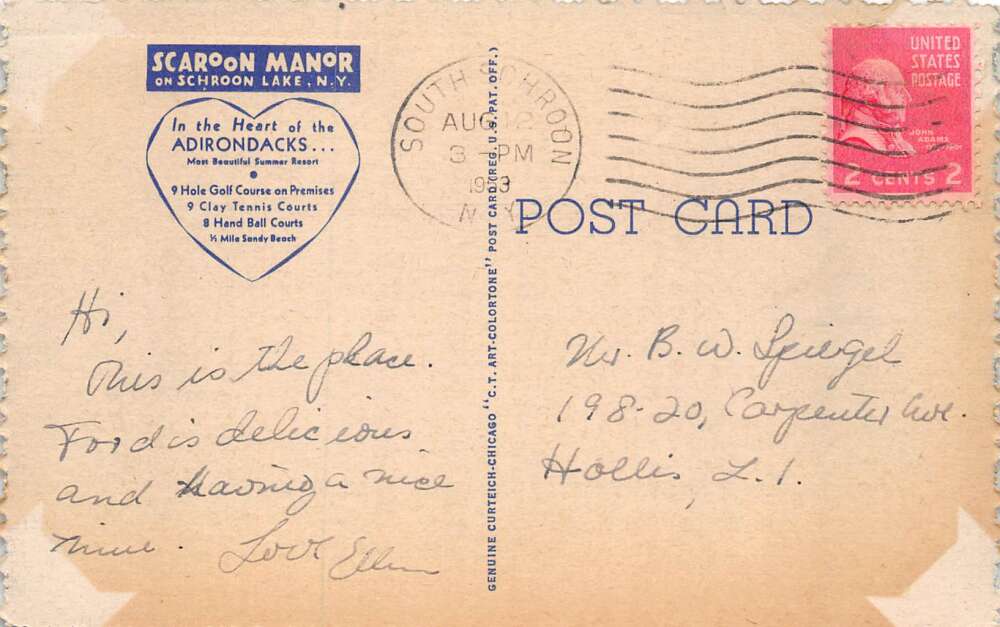 SCAROON MANOR
ON SCHROON LAKE, N.Y.
In the Heart of the
ADIRONDACKS...
Most Beautiful Summer Resort
9 Hole Golf Course on Premises
9 Clay Tennis Courts
8 Hand Ball Courts
½ Mile Sandy Beach
SOUTH SCHROON
AUG 12
3 - PM
1953
N.Y.
UNITED
STATES
POSTAGE
JOHN
ADAMS
2 CENTS 2
POST CARD
GENUINE CURTEICH-CHICAGO "C.T. ART-COLORTONE" POST CARD (REG. U.S. PAT. OFF.)
Hi,
This is the place.
Food is delicious
and having a nice
time. Love Ellen
Mr. B. W. Spiegel
198-20, Carpenter Ave.
Hollis, L.I.